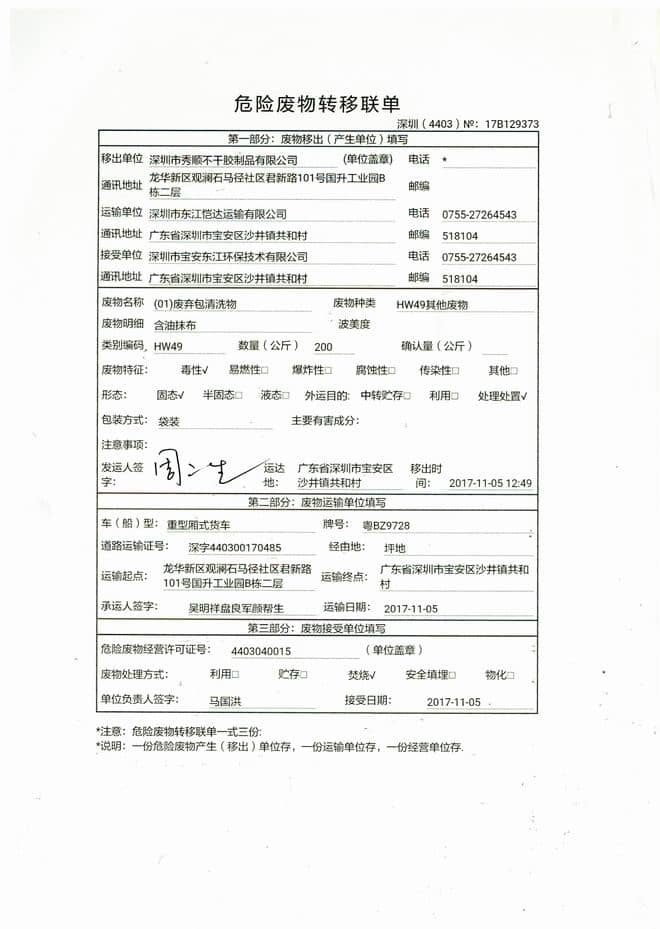 危险废物转移联单
深圳（4403）№：17B129373
第一部分：废物移出（产生单位）填写
移出单位 深圳市秀顺不干胶制品有限公司 （单位盖章） 电话 *
通讯地址 龙华新区观澜石马径社区君新路101号国升工业园B栋二层 邮编
运输单位 深圳市东江恺达运输有限公司 电话 0755-27264543
通讯地址 广东省深圳市宝安区沙井镇共和村 邮编 518104
接受单位 深圳市宝安东江环保技术有限公司 电话 0755-27264543
通讯地址 广东省深圳市宝安区沙井镇共和村 邮编 518104
废物名称 (01)废弃包清洗物 废物种类 HW49其他废物
废物明细 含油抹布 波美度
类别编码 HW49 数量（公斤） 200 确认量（公斤）
废物特征： 毒性√ 易燃性□ 爆炸性□ 腐蚀性□ 传染性□ 其他□
形态： 固态√ 半固态□ 液态□ 外运目的: 中转贮存□ 利用□ 处理处置√
包装方式： 袋装 主要有害成分：
注意事项：
发运人签字： 周二生 运达地： 广东省深圳市宝安区沙井镇共和村 移出时间： 2017-11-05 12:49
第二部分：废物运输单位填写
车（船）型： 重型厢式货车 牌号： 粤BZ9728
道路运输证号： 深字440300170485 经由地： 坪地
运输起点： 龙华新区观澜石马径社区君新路101号国升工业园B栋二层 运输终点： 广东省深圳市宝安区沙井镇共和村
承运人签字： 吴明祥盘良军颜帮生 运输日期： 2017-11-05
第三部分：废物接受单位填写
危险废物经营许可证号： 4403040015 （单位盖章）
废物处理方式： 利用□ 贮存□ 焚烧√ 安全填埋□ 物化□
单位负责人签字： 马国洪 接受日期： 2017-11-05
*注意：危险废物转移联单一式三份:
*说明：一份危险废物产生（移出）单位存，一份运输单位存，一份经营单位存.